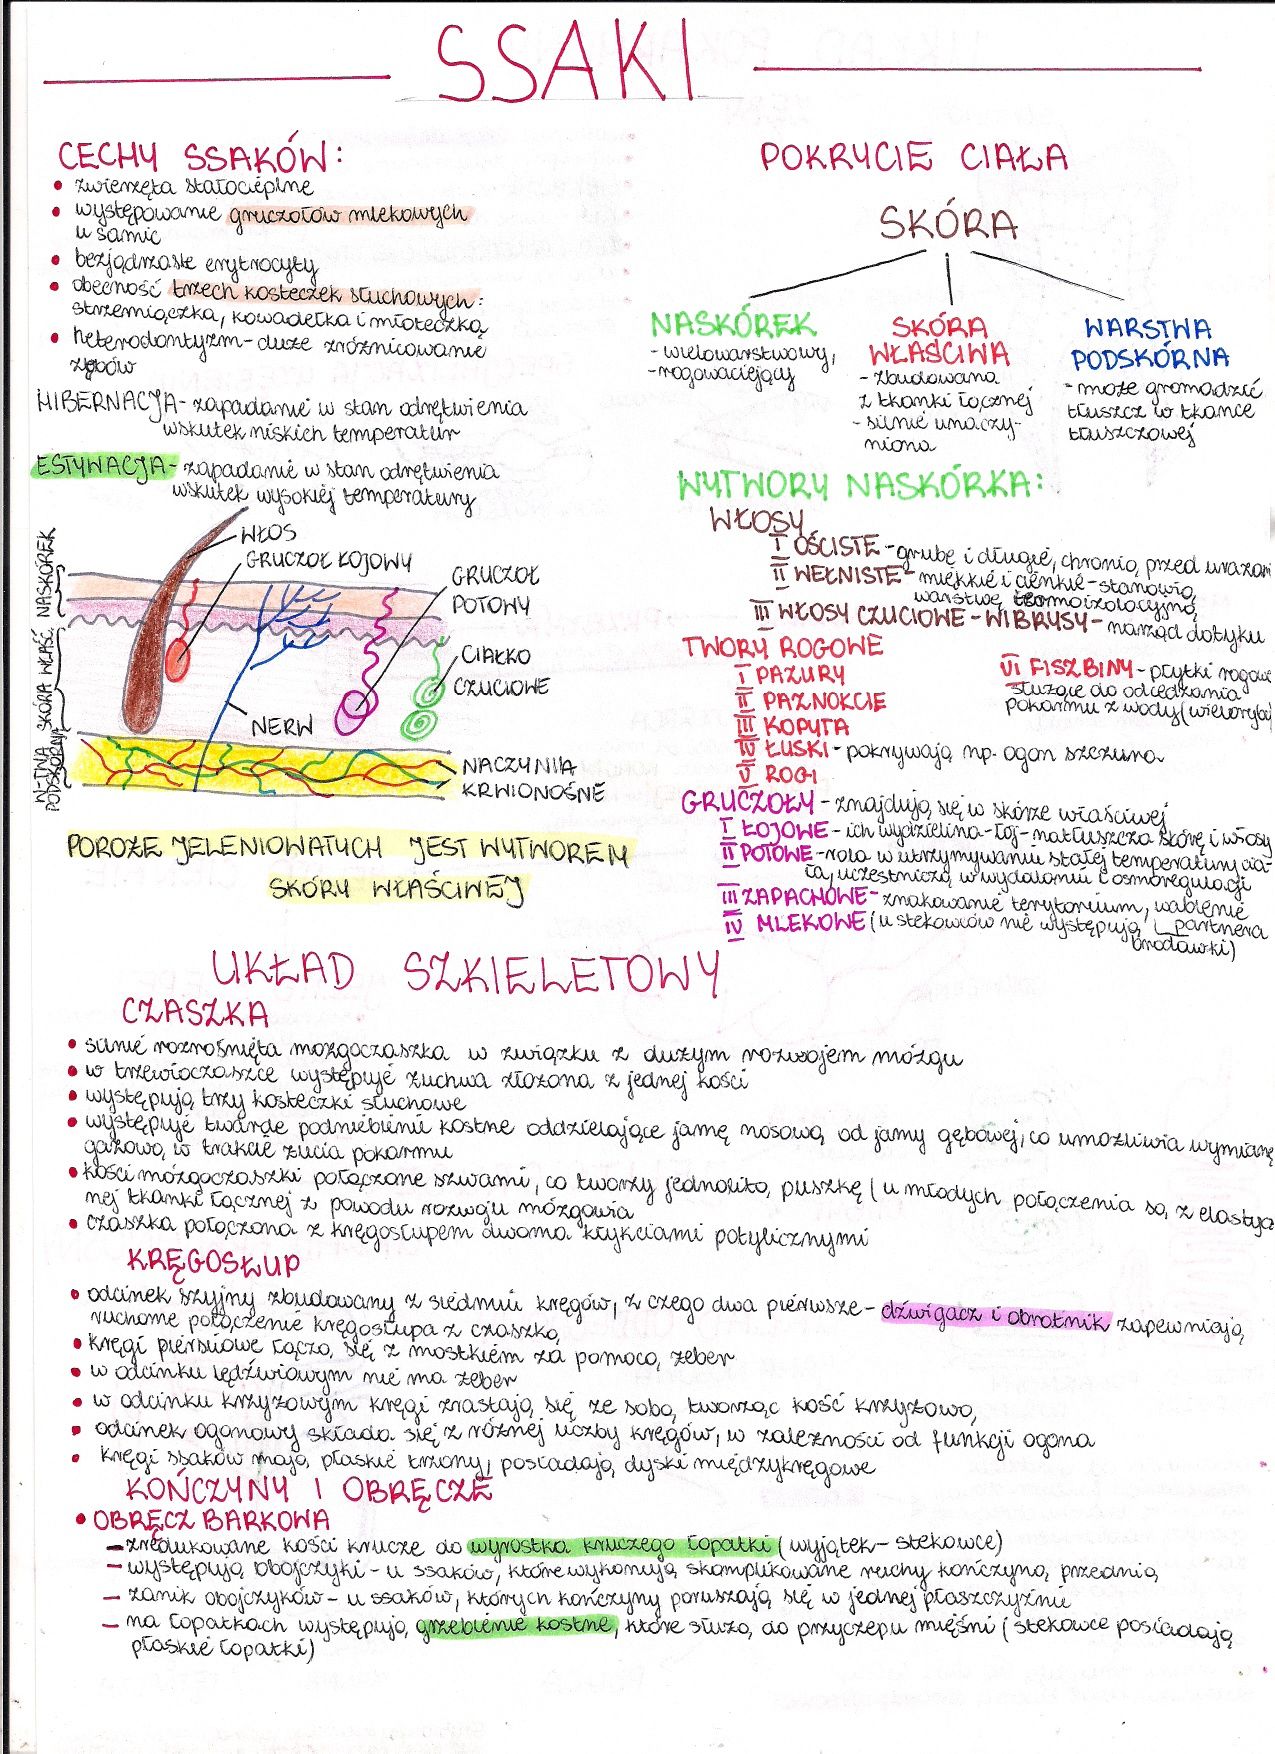 SSAKI
CECHY SSAKÓW:
• zwierzęta stałocieplne
• występowanie gruczołów mlekowych
u samic
• bezjądrzaste erytrocyty
• obecność trzech kosteczek słuchowych:
strzemiączka, kowadełka i młoteczka
• heterodontyzm - duże zróżnicowanie
zębów
HIBERNACJA - zapadanie w stan odrętwienia
wskutek niskich temperatur
ESTYWACJA - zapadanie w stan odrętwienia
wskutek wysokiej temperatury
WŁOS
GRUCZOŁ ŁOJOWY
GRUCZOŁ
POTOWY
CIAŁKO
CZUCIOWE
NERW
NACZYNIA
KRWIONOŚNE
NASKÓREK
SKÓRA WŁAŚC.
W-TWA
PODSKÓRNA
POROŻE JELENIOWATYCH JEST WYTWOREM
SKÓRY WŁAŚCIWEJ
POKRYCIE CIAŁA
SKÓRA
NASKÓREK
- wielowarstwowy,
- rogowaciejący
SKÓRA
WŁAŚCIWA
- zbudowana
z tkanki łącznej
- silnie unaczy-
niona
WARSTWA
PODSKÓRNA
- może gromadzić
tłuszcz w tkance
tłuszczowej
WYTWORY NASKÓRKA:
WŁOSY
I OŚCISTE - grube i długie, chronią przed urazami
II WEŁNISTE - miękkie i cienkie - stanowią
warstwę termoizolacyjną
III WŁOSY CZUCIOWE - WIBRYSY - narząd dotyku
TWORY ROGOWE
I PAZURY
II PAZNOKCIE
III KOPYTA
IV ŁUSKI - pokrywają np. ogon szczura
V ROGI
VI FISZBINY - płytki rogowe
służące do odcedzania
pokarmu z wody (wieloryby)
GRUCZOŁY - znajdują się w skórze właściwej
I ŁOJOWE - ich wydzielina - łój - natłuszcza skórę i włosy
II POTOWE - rola w utrzymywaniu stałej temperatury cia-
ła, uczestniczą w wydalaniu i osmoregulacji
III ZAPACHOWE - znakowanie terytorium, wabienie
partnera
IV MLEKOWE (u stekowców nie występują
brodawki)
UKŁAD SZKIELETOWY
CZASZKA
• silnie rozrośnięta mózgoczaszka w związku z dużym rozwojem mózgu
• w trzewioczaszce występuje żuchwa złożona z jednej kości
• występują trzy kosteczki słuchowe
• występuje twarde podniebienie kostne oddzielające jamę nosową od jamy gębowej, co umożliwia wymianę
gazową w trakcie żucia pokarmu
• kości mózgoczaszki połączone szwami, co tworzy jednolitą puszkę (u młodych połączenia są z elastycz
nej tkanki łącznej z powodu rozwoju mózgowia
• czaszka połączona z kręgosłupem dwoma kłykciami potylicznymi
KRĘGOSŁUP
• odcinek szyjny zbudowany z siedmiu kręgów, z czego dwa pierwsze - dźwigacz i obrotnik zapewniają
ruchome połączenie kręgosłupa z czaszką
• kręgi piersiowe łączą się z mostkiem za pomocą żeber
• w odcinku lędźwiowym nie ma żeber
• w odcinku krzyżowym kręgi zrastają się ze sobą tworząc kość krzyżową
• odcinek ogonowy składa się z różnej liczby kręgów, w zależności od funkcji ogona
• kręgi ssaków mają płaskie trzony, posiadają dyski międzykręgowe
KOŃCZYNY I OBRĘCZE
• OBRĘCZ BARKOWA
- zredukowane kości krucze do wyrostka kruczego łopatki (wyjątek - stekowce)
- występują obojczyki - u ssaków, które wykonują skomplikowane ruchy kończyną przednią
- zanik obojczyków - u ssaków, których kończyny poruszają się w jednej płaszczyźnie
- na łopatkach występują grzebienie kostne, które służą do przyczepu mięśni (stekowce posiadają
płaskie łopatki)